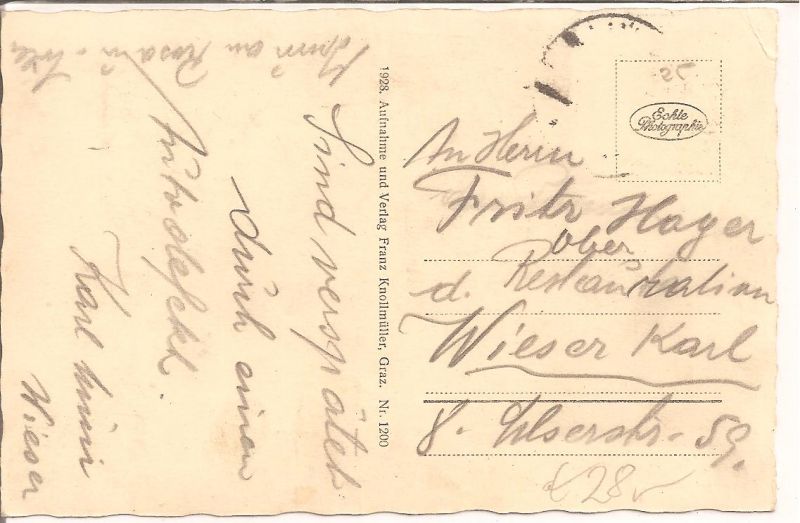 Sind verspätet
durch einen
Autodefekt.
Karl
Wieser
1928. Aufnahme und Verlag Franz Knollmüller, Graz. Nr. 1200
25
Echte
Photographie
An Herrn
Fritz Hager
Ober
d. Restauration
Wieser Karl
8. 59.
28